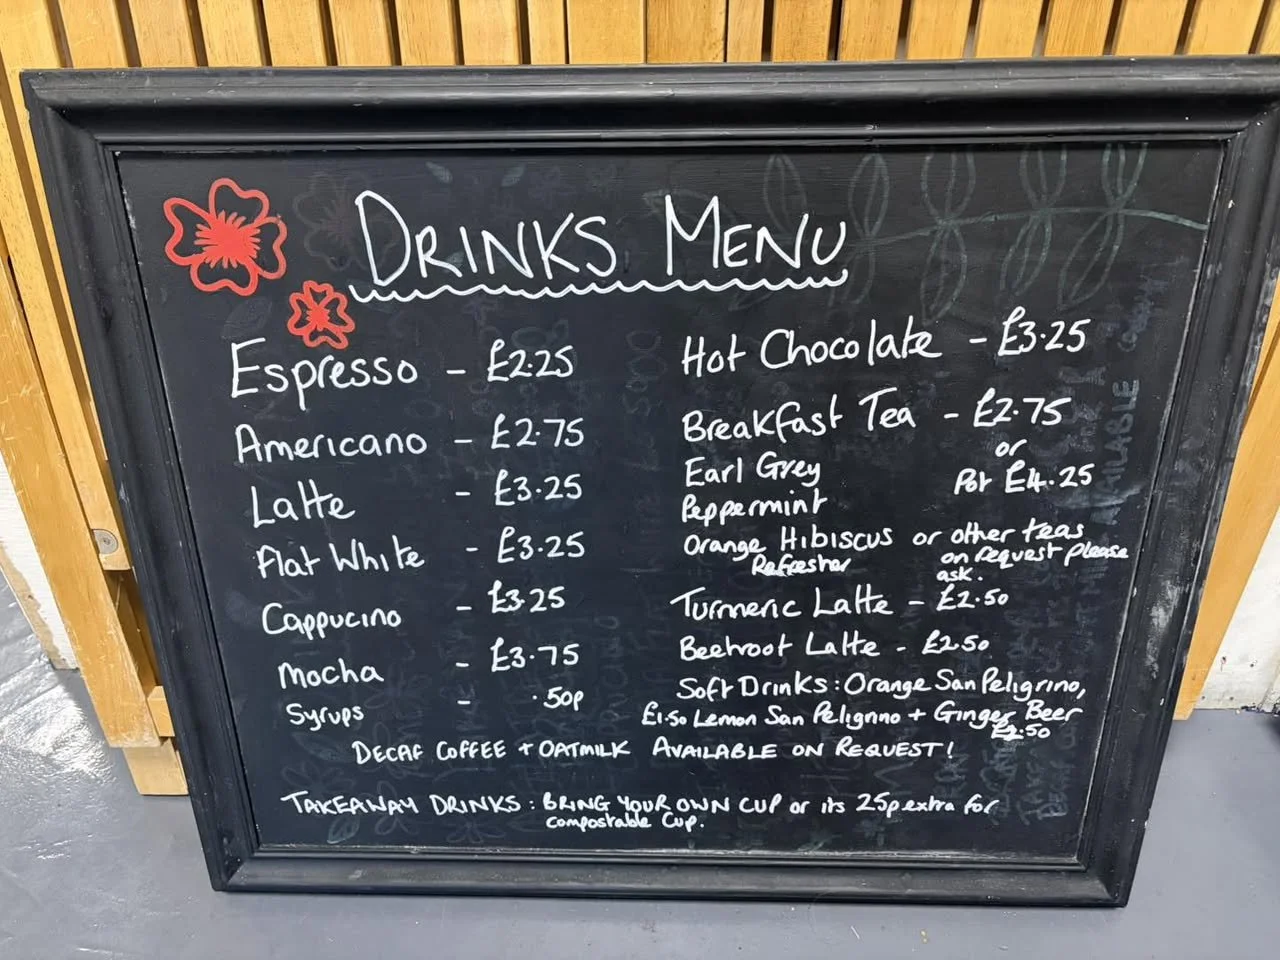 DRINKS MENU
Espresso - £2.25
Americano - £2.75
Latte - £3.25
Flat White - £3.25
Cappucino - £3.25
Mocha - £3.75
Syrups - .50p
Hot Chocolate - £3.25
Breakfast Tea - £2.75
or
Earl Grey Pot £4.25
Peppermint
Orange Hibiscus or other teas
Refresher on request please
ask.
Turmeric Latte - £2.50
Beetroot Latte - £2.50
Soft Drinks: Orange San Peligrino,
£1.50 Lemon San Peligrino + Ginger Beer
£2.50
DECAF COFFEE + OATMILK AVAILABLE ON REQUEST!
TAKEAWAY DRINKS: BRING YOUR OWN CUP or its 25p extra for
compostable cup.